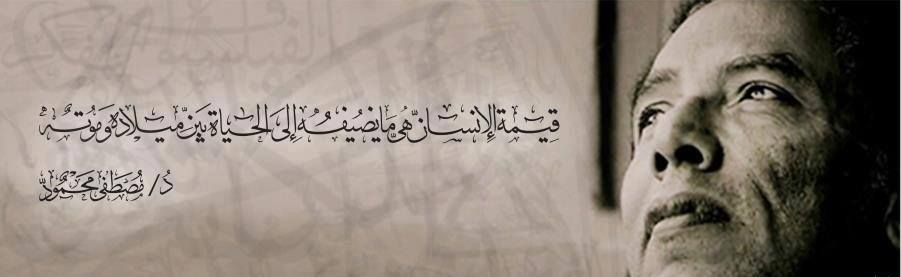 قيمة الإنسان هي ما يضيفه إلى الحياة بين ميلاده وموته
د/ مصطفى محمود